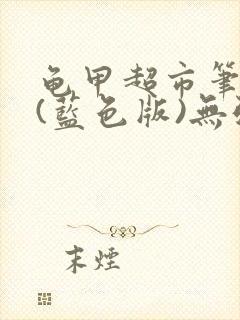 龟甲超市筆
(藍色版)無
末煙